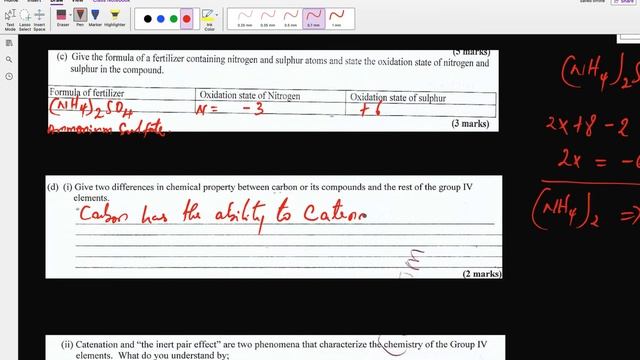 Saved online
Class Notebook
Text Mode
Lasso Select
Insert Space
Eraser
Pen
Marker
Highlighter
0.25 mm
0.35 mm
0.5 mm
0.7 mm
1 mm
(5 marks)
(c) Give the formula of a fertilizer containing nitrogen and sulphur atoms and state the oxidation state of nitrogen and
sulphur in the compound.
Formula of fertilizer
Oxidation state of Nitrogen
Oxidation state of sulphur
(NH4)2SO4
N = -3
+6
Ammonium Sulfate
(3 marks)
(d) (i) Give two differences in chemical property between carbon or its compounds and the rest of the group IV
elements.
Carbon has the ability to Catena
(2 marks)
(ii) Catenation and "the inert pair effect" are two phenomena that characterize the chemistry of the Group IV
elements. What do you understand by;
(NH4)2S
2x+8-2
2x = -6
(NH4)2 =>